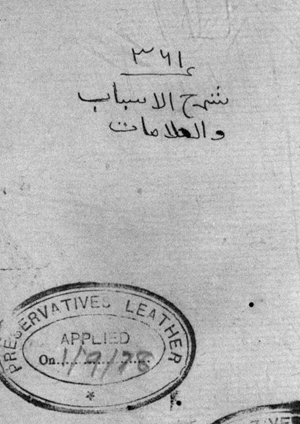 ٣٦١
شرح الاسباب
والعلامات
PRESERVATIVES LEATHER
APPLIED
On 1/9/78